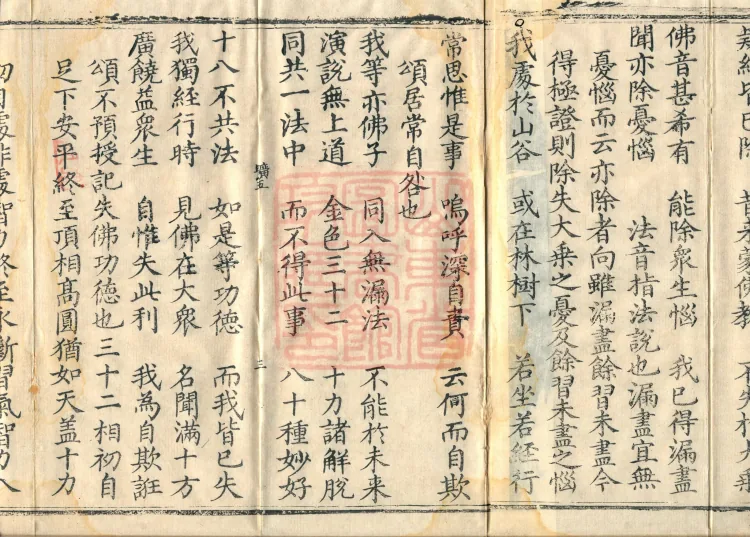 疑網皆已除 昔來蒙佛教 不失於大乘
佛音甚希有 能除衆生惱 我已得漏盡
聞亦除憂惱 法音指法說也漏盡宜無
憂惱而云亦除者向雖漏盡餘習未盡今
得極證則除失大乗之憂及餘習未盡之惱
我處於山谷 或在林樹下 若坐若經行
常思惟是事 嗚呼深自責 云何而自欺
頌居常自咎也
我等亦佛子 同入無漏法 不能於未来
演說無上道 金色三十二 十力諸解脫
同共一法中 而不得此事 八十種妙好
壙五 三
十八不共法 如是等功德 而我皆已失
我獨經行時 見佛在大衆 名聞滿十方
廣饒益衆生 自惟失此利 我為自欺誑
頌不預授記失佛功德也三十二相初自
足下安平終至頂相髙圓猶如天盖十力
初自處非處智力終至永斷習氣智力八